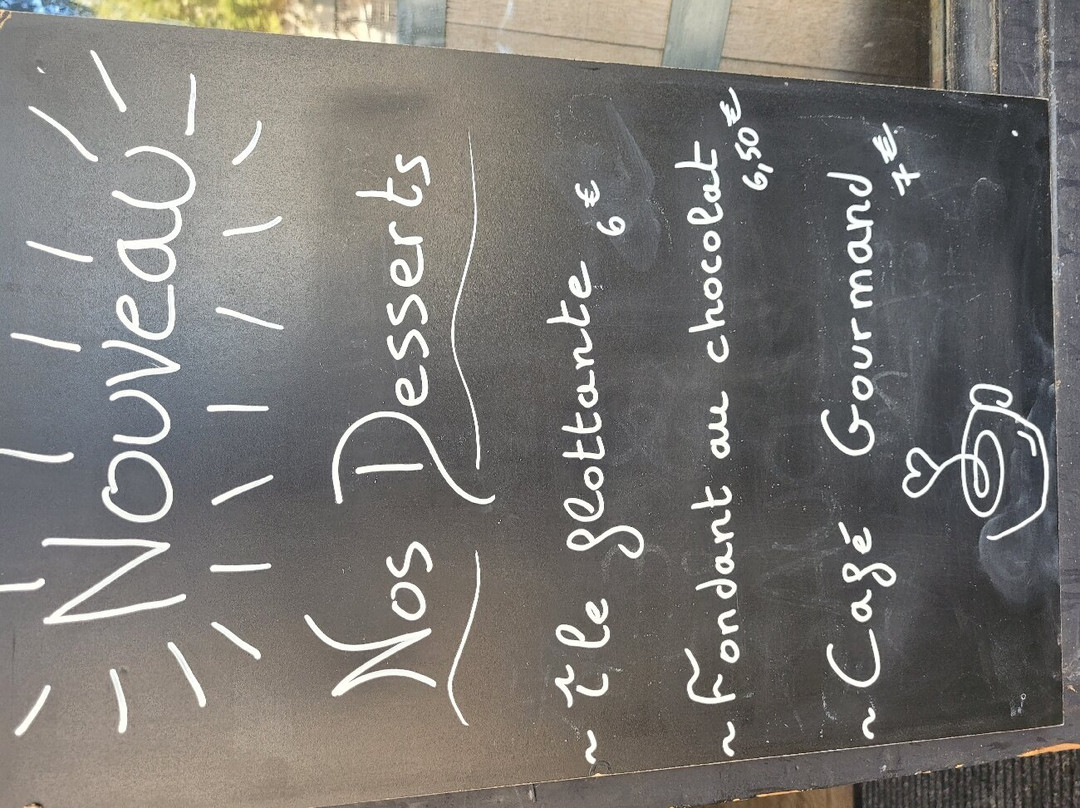 Nouveau
Nos Desserts
~ île flottante 6€
~ Fondant au chocolat
6,50€
~ Café Gourmand
7€